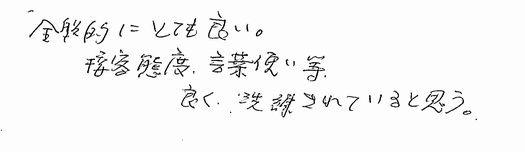 全般的にとても良い。
接客態度、言葉使い等、
良く、洗練されていると思う。